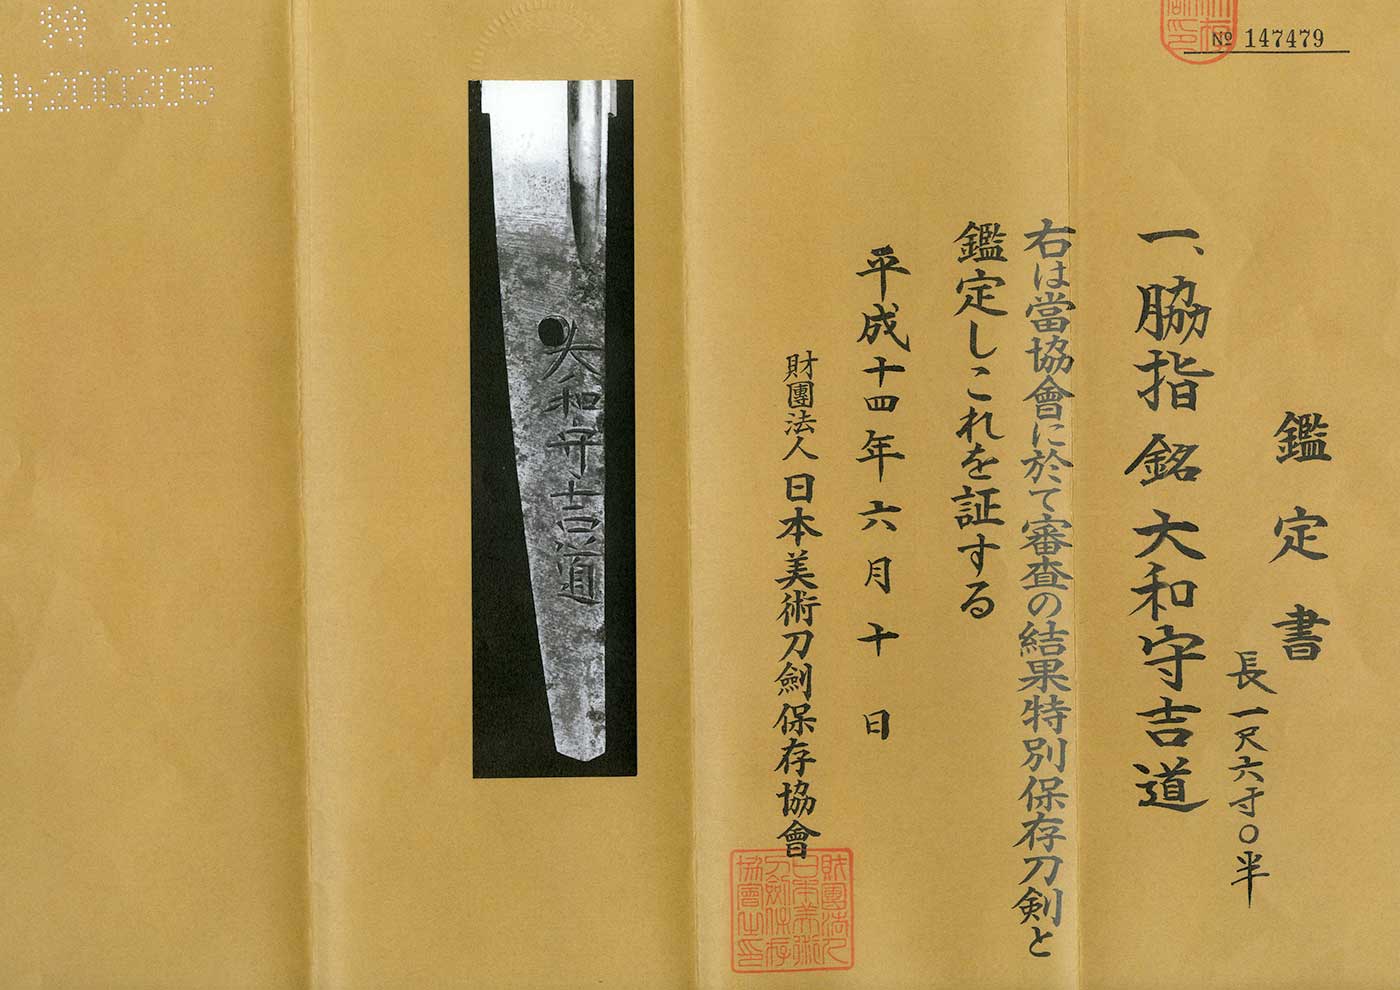 № 147479
鑑定書
長一尺六寸〇半
一、脇指 銘 大和守吉道
右は當協會に於て審査の結果特別保存刀剣と
鑑定しこれを証する
平成十四年六月十日
財團法人 日本美術刀劍保存協會
財團法人
日本美術
刀劍保存
協會之印
大和守吉道
特保
14200205